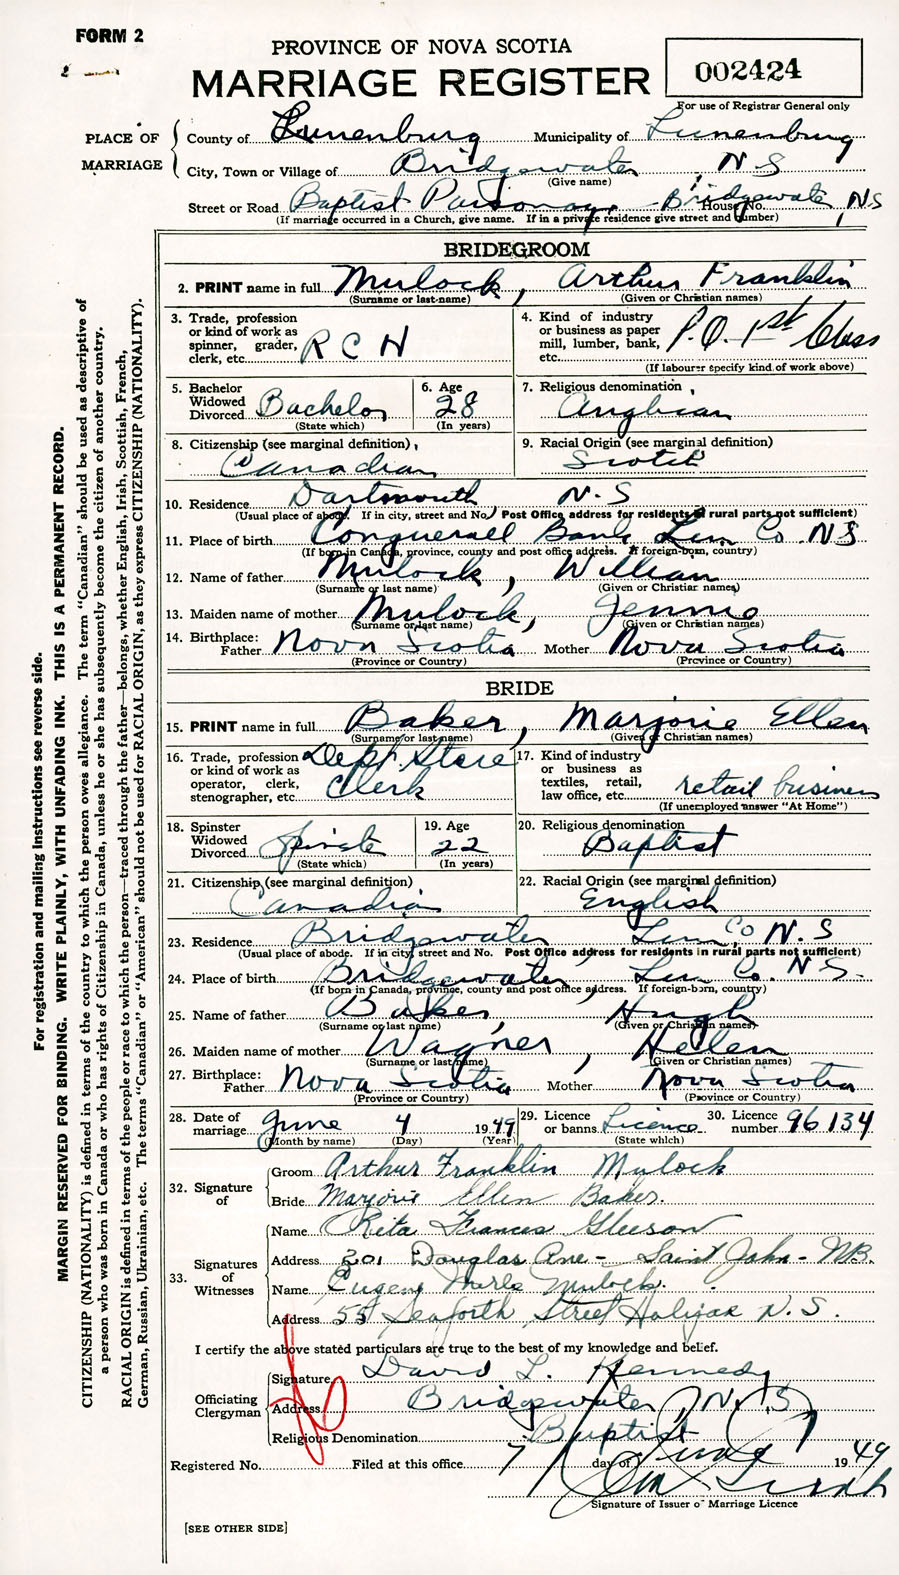 FORM 2
2
PROVINCE OF NOVA SCOTIA
MARRIAGE REGISTER
002424
For use of Registrar General only
PLACE OF MARRIAGE
County of Lunenburg Municipality of Lunenburg
City, Town or Village of Bridgewater, N S
(Give name)
Street or Road Baptist Parsonage, Bridgewater, NS House No.
(If marriage occurred in a Church, give name. If in a private residence give street and number)
BRIDEGROOM
2. PRINT name in full Mulock, Arthur Franklin
(Surname or last name) (Given or Christian names)
3. Trade, profession or kind of work as spinner, grader, clerk, etc. R C N
4. Kind of industry or business as paper mill, lumber, bank, etc. P.O. 1st Class
(If labourer specify kind of work above)
5. Bachelor Widowed Divorced Bachelor
(State which)
6. Age 28
(In years)
7. Religious denomination Anglican
8. Citizenship (see marginal definition) Canadian
9. Racial Origin (see marginal definition) Scotch
10. Residence Dartmouth N. S
(Usual place of abode. If in city, street and No. Post Office address for residents of rural parts not sufficient)
11. Place of birth Conquerall Bank Lun Co. NS
(If born in Canada, province, county and post office address. If foreign-born, country)
12. Name of father Mulock, William
(Surname or last name) (Given or Christian names)
13. Maiden name of mother Mulock, Jennie
(Surname or last name) (Given or Christian names)
14. Birthplace: Father Nova Scotia Mother Nova Scotia
(Province or Country) (Province or Country)
BRIDE
15. PRINT name in full Baker, Marjorie Ellen
(Surname or last name) (Given or Christian names)
16. Trade, profession or kind of work as operator, clerk, stenographer, etc. Dept. Store Clerk
17. Kind of industry or business as textiles, retail, law office, etc. retail business
(If unemployed answer "At Home")
18. Spinster Widowed Divorced
(State which)
19. Age 22
(In years)
20. Religious denomination Baptist
21. Citizenship (see marginal definition) Canadian
22. Racial Origin (see marginal definition) English
23. Residence Bridgewater, Lun Co N. S
(Usual place of abode. If in city, street and No. Post Office address for residents in rural parts not sufficient)
24. Place of birth Bridgewater, Lun Co. N S.
(If born in Canada, province, county and post office address. If foreign-born, country)
25. Name of father Baker, Hugh
(Surname or last name) (Given or Christian names)
26. Maiden name of mother Wagner, Helen
(Surname or last name) (Given or Christian names)
27. Birthplace: Father Nova Scotia Mother Nova Scotia
(Province or Country) (Province or Country)
28. Date of marriage June 4 1949
(Month by name) (Day) (Year)
29. Licence or banns Licence
(State which)
30. Licence number 96134
32. Signature of
Groom Arthur Franklin Mulock
Bride Marjorie Ellen Baker.
33. Signatures of Witnesses
Name Rita Frances Gleeson
Address 301 Douglas Ave - Saint John - N.B.
Name Eugene Merle Mulock.
Address 55 Seaforth Street Halifax N. S.
I certify the above stated particulars are true to the best of my knowledge and belief.
Officiating Clergyman
Signature David L. Kennedy
Address Bridgewater, N. S
Religious Denomination Baptist
Registered No. Filed at this office 7 day of June 1949
Signature of Issuer of Marriage Licence
[SEE OTHER SIDE]
For registration and mailing instructions see reverse side.
MARGIN RESERVED FOR BINDING. WRITE PLAINLY, WITH UNFADING INK. THIS IS A PERMANENT RECORD.
CITIZENSHIP (NATIONALITY) is defined in terms of the country to which the person owes allegiance. The term "Canadian" should be used as descriptive of
a person who was born in Canada or who has rights of Citizenship in Canada, unless he or she has subsequently become the citizen of another country.
RACIAL ORIGIN is defined in terms of the people or race to which the person—traced through the father—belongs, whether English, Irish, Scottish, French,
German, Russian, Ukrainian, etc. The terms "Canadian" or "American" should not be used for RACIAL ORIGIN, as they express CITIZENSHIP (NATIONALITY).